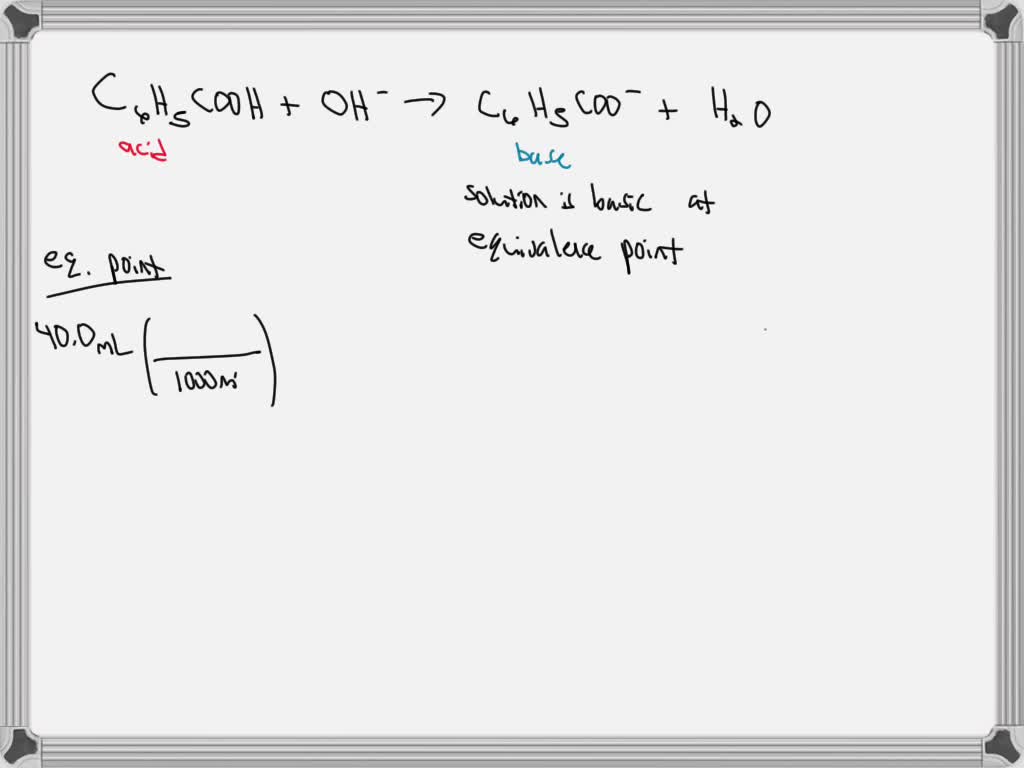 C₆H₅COOH + OH⁻ → C₆H₅COO⁻ + H₂O
acid base
solution is basic at
equivalence point
eq. point
40.0mL ( / 1000m )